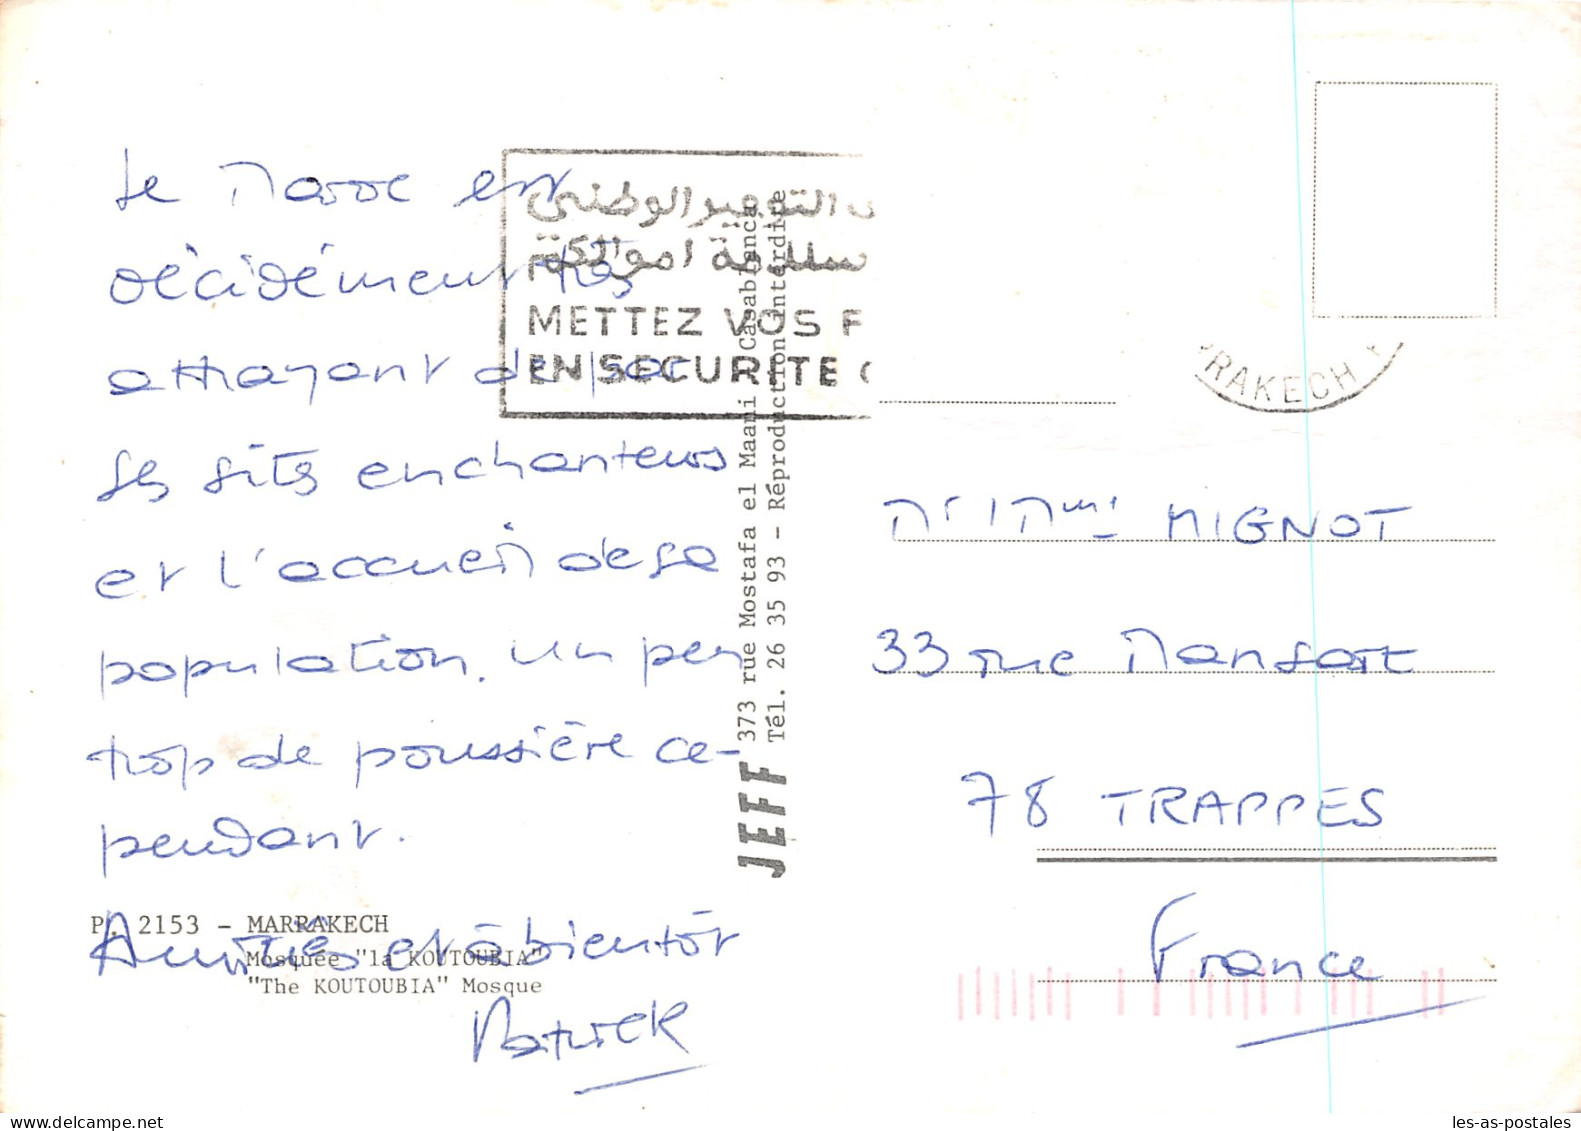 Le Maroc est
décidément très
attrayant de par
ses sites enchanteurs
et l'accueil de sa
population. Un peu
trop de poussière ce-
pendant.
Amitiés et à bientôt
Patrick
P. 2153 - MARRAKECH
Mosquée "la KOUTOUBIA"
"The KOUTOUBIA" Mosque
التوفير الوطني
سلامة اموالكم
METTEZ VOS F
EN SECURITE
JEFF 373 rue Mostafa el Maani - Casablanca
Tél. 26 35 93 - Réproduction interdite
RRAKECH
Mr / Mme MIGNOT
33 rue Mansart
78 TRAPPES
France
les-as-postales